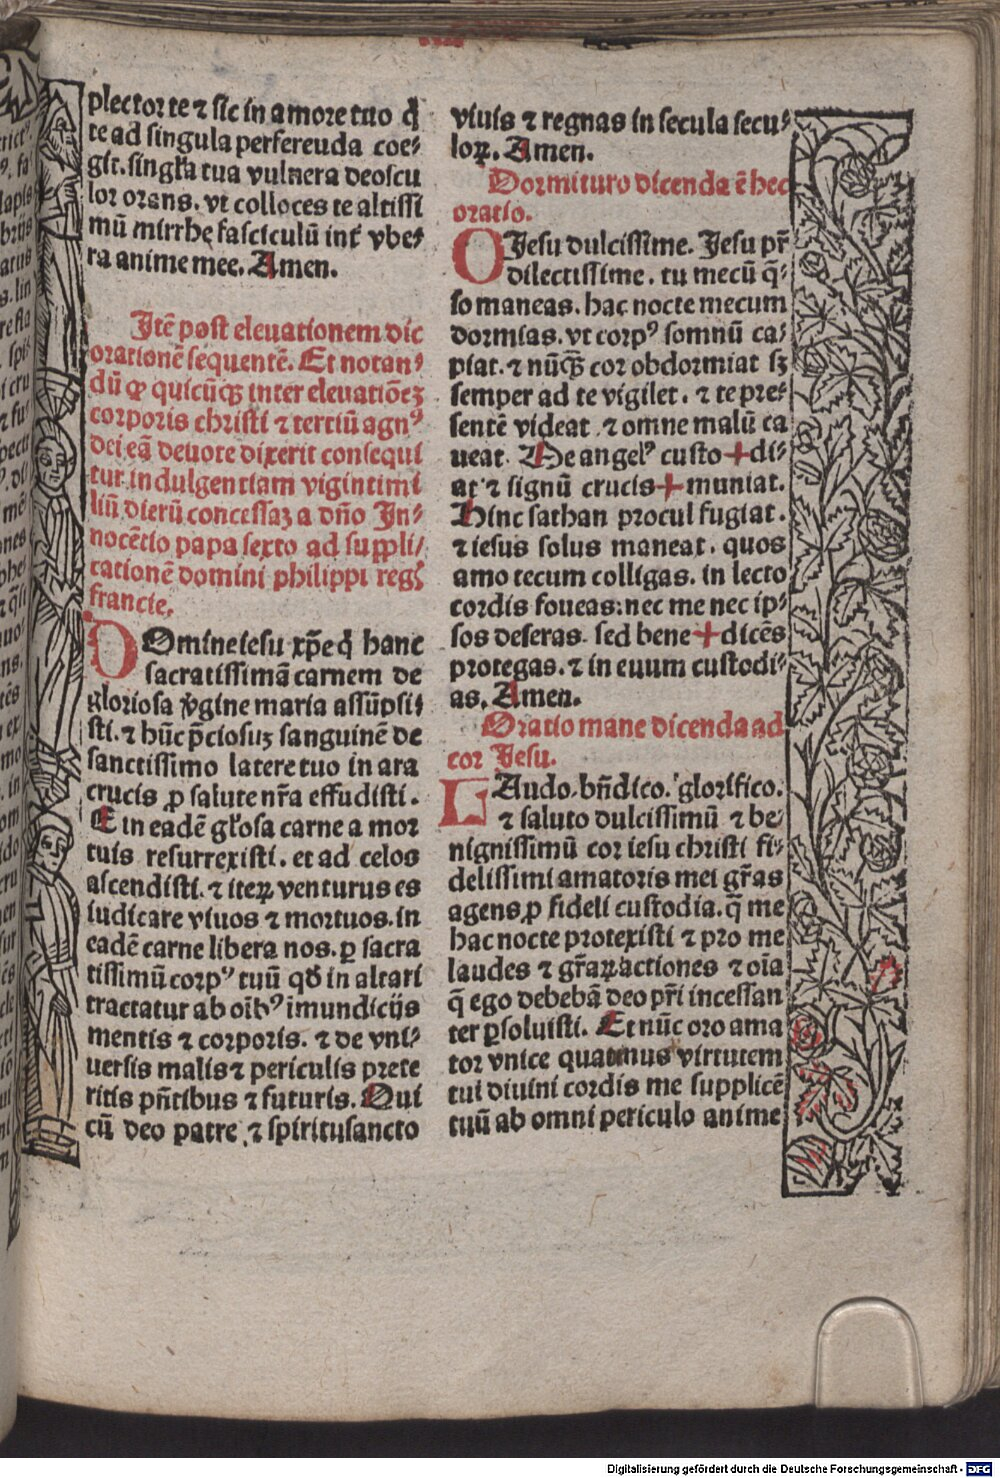 plector te ⁊ sic in amore tuo q̇
te ad singula perferenda coe⸗
git. singl̃a tua vulnera deoscu
lor orans. vt colloces te altissi
mũ mirrhę fasciculũ int᷑ vbe⸗
ra anime mee. Amen.
Itẽ post eleuationem dic
orationẽ sequentẽ. Et notan⸗
dũ ꝙ quicũqꝫ inter eleuatiõeꝫ
corporis christi ⁊ tertiũ agnꝰ
dei eã deuote dixerit consequi
tur indulgentiam vigintimi
liũ dierũ concessaꝫ a dño In⸗
nocẽtio papa sexto ad suppli⸗
cationẽ domini philippi regꝭ
francie.
DOmine iesu xp̃e q̇ hanc
sacratissimã carnem de
gloriosa v̾gine maria assũpsi⸗
sti. ⁊ hũc p̃ciosuꝫ sanguinẽ de
sanctissimo latere tuo in ara
crucis ꝓ salute nr̃a effudisti.
Et in eadẽ gl̃osa carne a mor
tuis resurrexisti. et ad celos
ascendisti. ⁊ iteꝝ venturus es
iudicare viuos ⁊ mortuos. in
eadẽ carne libera nos. ꝑ sacra
tissimũ corpꝰ tuũ qđ in altari
tractatur ab oĩbꝰ ĩmundicijs
mentis ⁊ corporis. ⁊ de vni⸗
uersis malis ⁊ periculis prete
ritis pñtibus ⁊ futuris. Qui
cũ deo patre ⁊ spiritusancto
viuis ⁊ regnas in secula secu⸗
loꝝ. Amen.
Dormituro dicenda ẽ hec
oratio.
O Jesu dulcissime. Jesu pr̃
dilectissime. tu mecũ q̃⸗
so maneas. hac nocte mecum
dormias. vt corpꝰ somnũ ca⸗
piat. ⁊ nũqꝫ cor obdormiat sꝫ
semper ad te vigilet. ⁊ te pre⸗
sentẽ videat ⁊ omne malũ ca
ueat. Me angelꝰ custo✚di⸗
at ⁊ signũ crucis✚muniat.
Hinc sathan procul fugiat.
⁊ iesus solus maneat. quos
amo tecum colligas. in lecto
cordis foueas: nec me nec ip⸗
sos deseras. sed bene✚dicẽs
protegas. ⁊ in euum custodi⸗
as. Amen.
Oratio mane dicenda ad
cor Jesu.
LAudo. bñdico. glorifico.
⁊ saluto dulcissimũ ⁊ be⸗
nignissimũ cor iesu christi fi⸗
delissimi amatoris mei gr̃as
agens ꝓ fideli custodia. q̃ me
hac nocte protexisti ⁊ pro me
laudes ⁊ gr̃aꝝactiones ⁊ oĩa
q̃ ego debebã deo pr̃i incessan
ter ꝑsoluisti. Et nũc oro ama
tor vnice quatinus virtutem
tui diuini cordis me supplicẽ
tuũ ab omni periculo anime
Digitalisierung gefördert durch die Deutsche Forschungsgemeinschaft - DFG